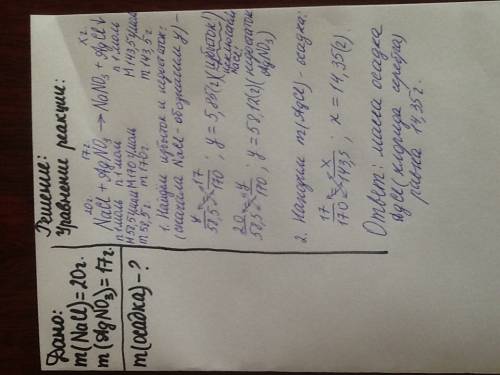 Дано:
m(NaCl)=20г.
m(AgNO₃)=17г.
m(осадка)-?
Решение:
Уравнение реакции:
20г. 17г. xг.
NaCl + AgNO₃ → NaNO₃ + AgCl↓
n 1моль n 1моль n 1моль
M 58,5 г/моль M 170 г/моль M 143,5 г/моль
m 58,5г. m 170г. m 143,5г.
1. Найдем избыток и недостаток:
(сначала NaCl - обозначим y) -
y/58,5 = 17/170 ; y = 5,85(г.) (избыток)
NaCl
20/58,5 = y/170 ; y = 58,12(г) (недостаток
AgNO₃)
2. Находим m(AgCl) - осадка:
17/170 = x/143,5 ; x = 14,35(г).
Ответ: масса осадка
AgCl (хлорида серебра)
равна 14,35г.